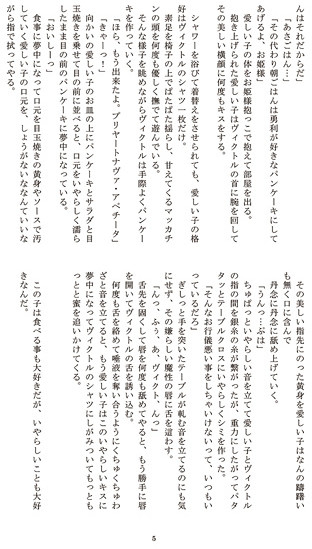 んはそれだからだ」
「あさごはん…」
「その代わり朝ごはんは勇利が好きなパンケーキにして
あげるよ、お姫様」
愛しい子の体をお姫様抱っこで抱えて部屋を出る。
抱き上げられた愛しい子はヴィクトルの首に腕を回して
その美しい横顔に何度もキスをする。
シャワーを浴びて着替えをさせられても、愛しい子の格
好はヴィクトルのシャツ一枚だけ。
素足を椅子の上でぱたぱた揺らし、甘えてくるマッカチ
ンの頭を何度も優しく撫でて遊んでいる。
そんな様子を眺めながらヴィクトルは手際よくパンケー
キを作っていく。
「ほら、もう出来たよ。プリヤートナヴァ・アペチータ」
「きゃーっ！」
向かいの愛しい子のお皿の上にパンケーキとサラダと目
玉焼きを乗せて目の前に並べると、口元をいやらしく濡ら
したまま目の前のパンケーキに夢中になっている。
「おいしーっ」
食事に夢中になって口元を目玉焼きの黄身やソースで汚
していく愛しい子の口元を、しょうがないななんていいな
がら指で拭ってやる。
その美しい指先にのった黄身を愛しい子はなんの躊躇
も無く口に含んで
丹念に丹念に舐め上げていく。
「うんっ…ぷは」
ちゅぱっといやらしい音を立て愛しい子とヴィクトル
の指の間を銀糸の糸が繋がったが、重力にしたがってパタ
タッとテーブルクロスにいやらしくシミを作った。
「そんなお行儀悪い事をしちゃいけないって、いつもい
っているだろ」
ぎしっと手を突いたテーブルが軋む音を立てるのにも気
にせず、その嫌らしい魔性の唇に舌を這わす。
「んっ、ふぅ、あ、ヴィクト、んっ」
舌先を固くして唇を何度も舐めてやると、もう勝手に唇
を開いてヴィクトルの舌を誘い込む。
何度も舌を絡めて唾液を奪い合うようにくちゅくちゅわ
ざと音を立てると、もう愛しい子はこのいやらしいキスに
夢中になってヴィクトルのシャツにしがみついてもっとも
っとと蜜を追いかけてくる。
この子は食べる事も大好きだが、いやらしいことも大好
きなんだ。
5